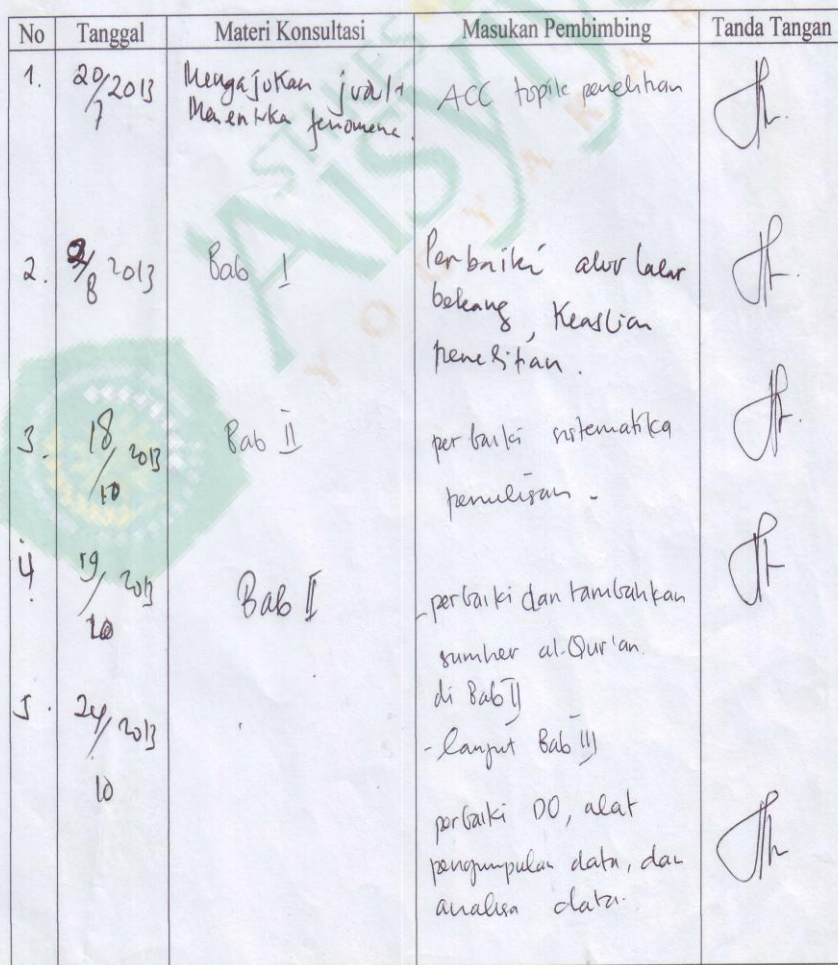 No Tanggal Materi Konsultasi Masukan Pembimbing Tanda Tangan
1. 20/7 2013 Mengajukan judul ACC topik penelitian
fenomena.
2. 2/8 2013 Bab I Perbaiki alur latar
belakang, Keaslian
penelitian.
3. 18/10 2013 Bab II perbaiki sistematika
penulisan -
4. 19/10 2013 Bab II - perbaiki dan tambahkan
sumber al-Qur'an
di Bab II
5. 24/10 2013 - lanjut Bab III
perbaiki DO, alat
pengumpulan data, dan
analisa data.
STIKES
'Aisyiy
YOGYAKAR